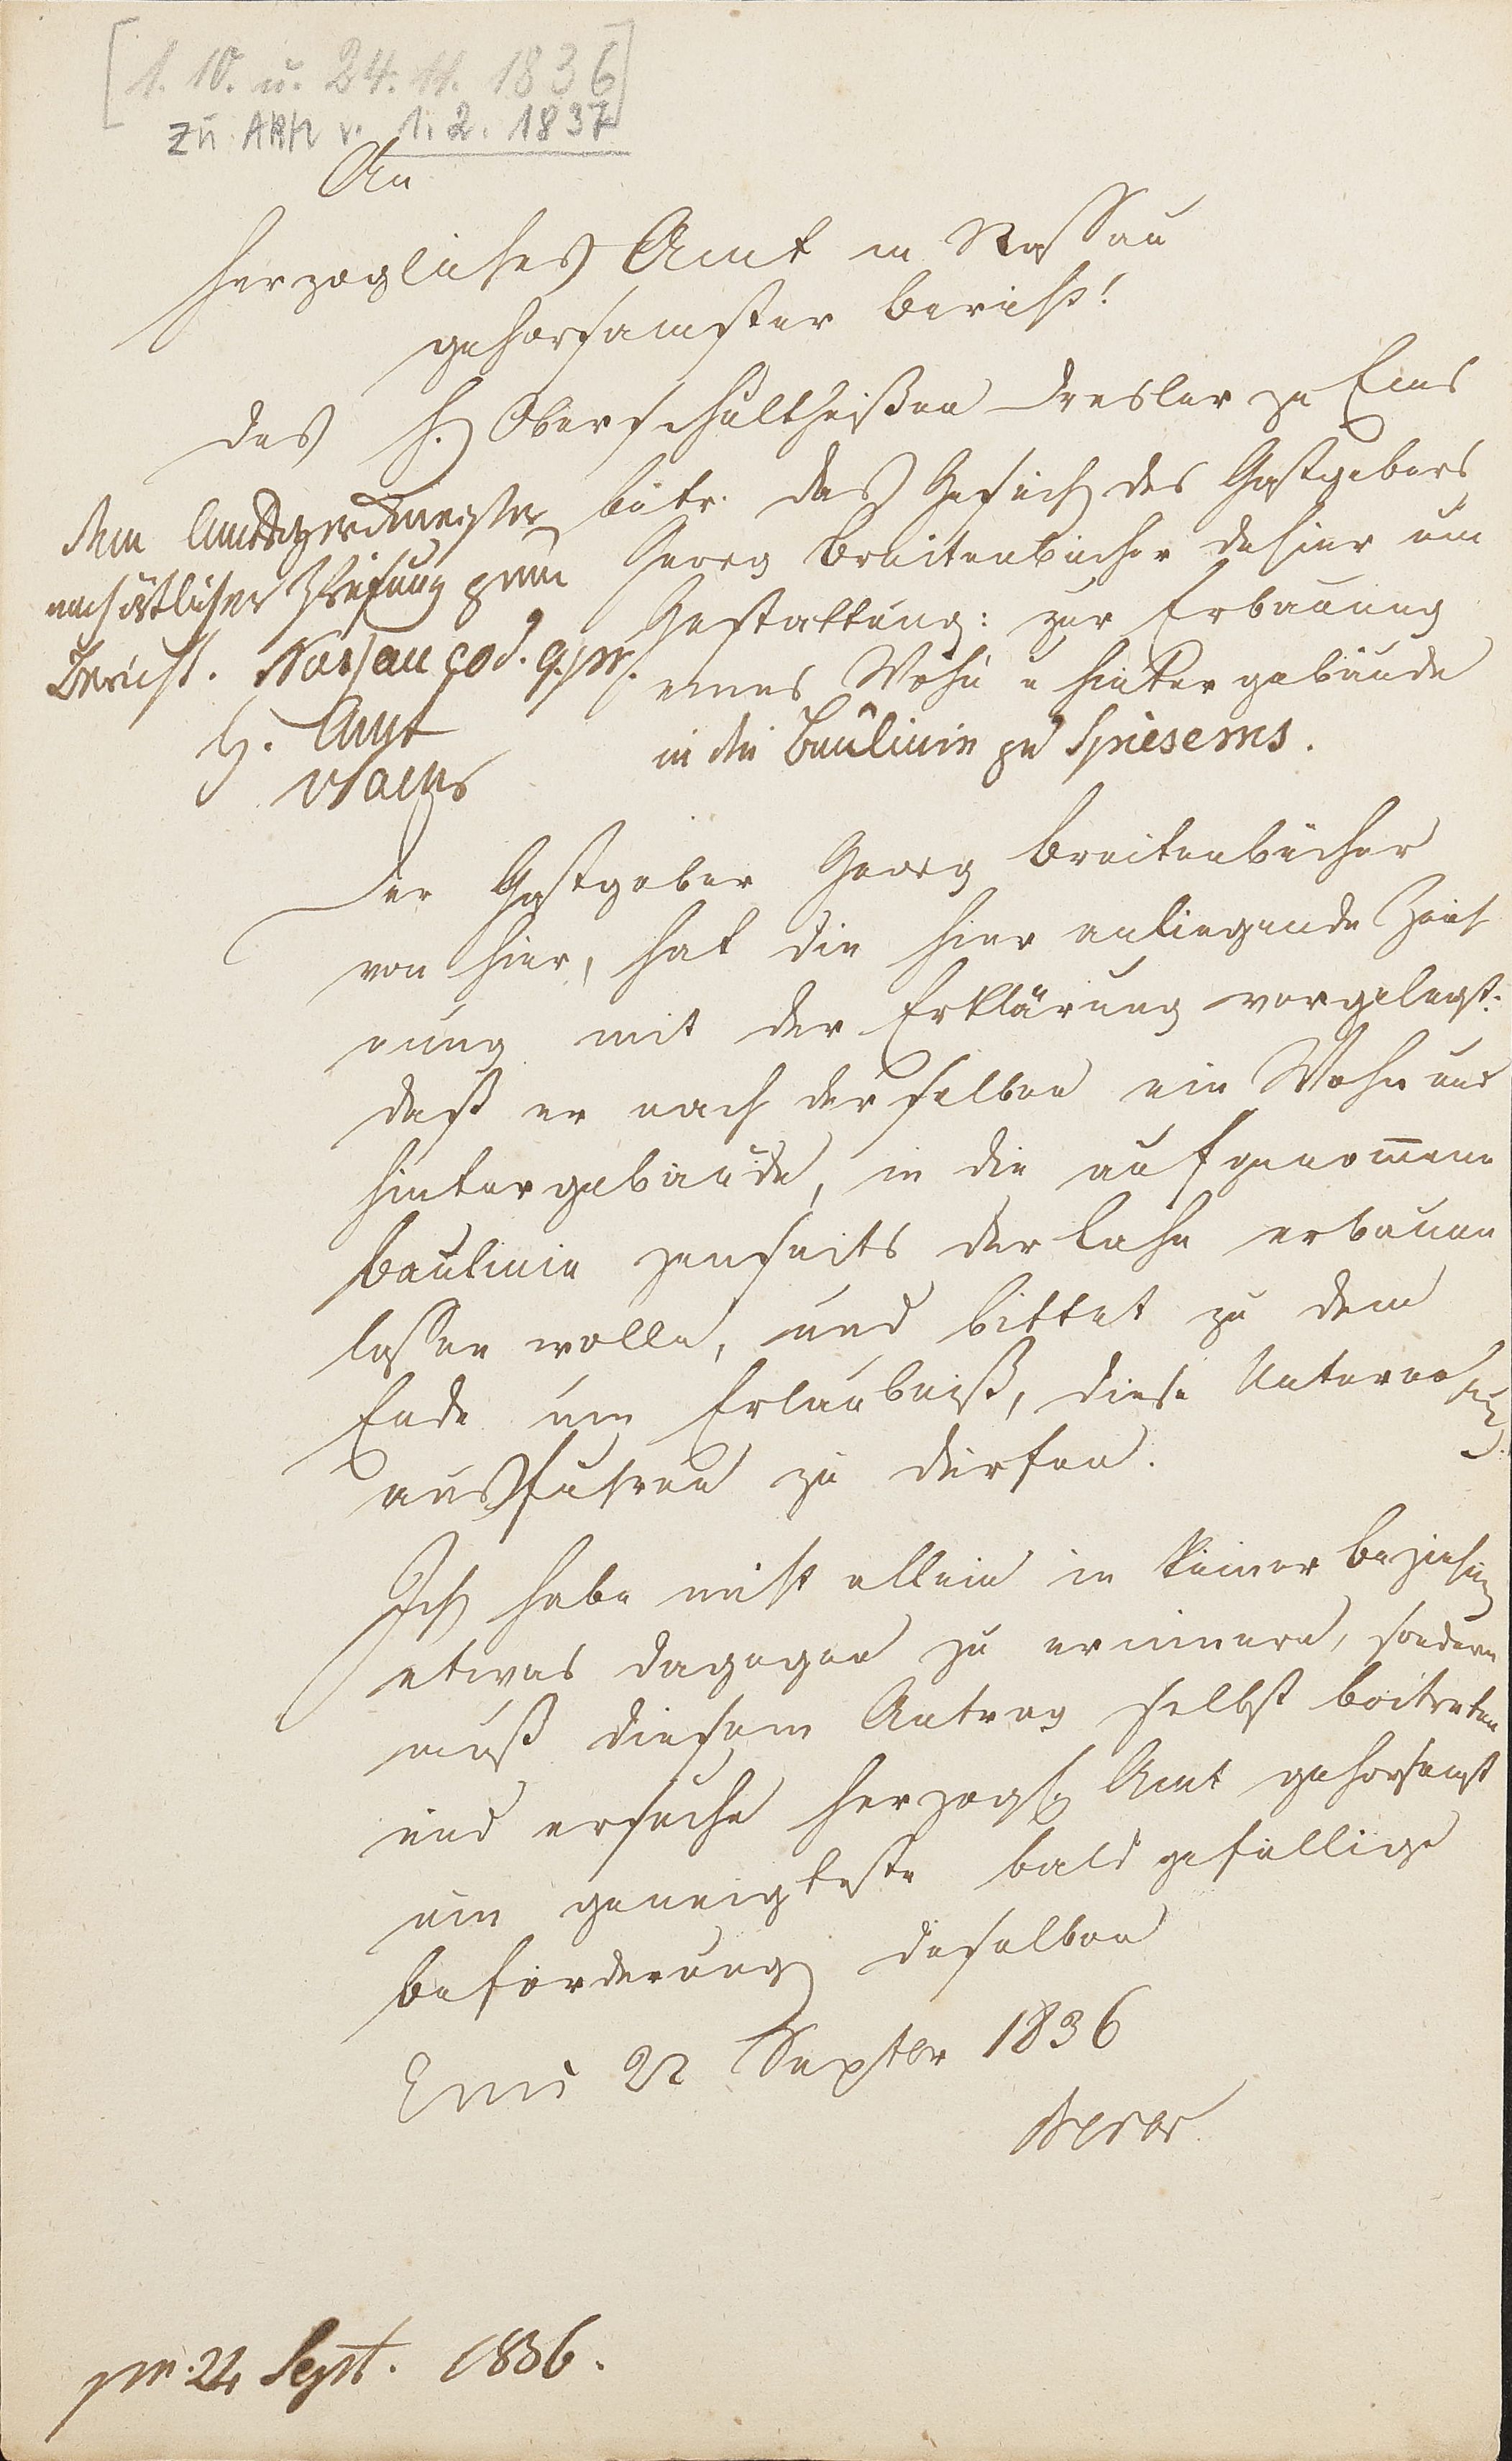 [1. 10. u. 24. 11. 1836]
zu ARK v. 1. 2. 1837
An
Herzogliches Amt in Nassau
gehorsamster Bericht!
des H. Oberschultheißen Dresler zu Ems
betr. das Gesuch des Gastgebers
Georg Breitenbücher dahier um
Gestattung: zur Erbauung
eines Wohn u Hintergebäude
in die Baulinie zu Spiesems.
Dem Amtswerkmeister
nach örtlicher Prüfung zum
Bericht. Nassau eod. q. pr.
H. Amt
Der Gastgeber Georg Breitenbücher
von hier, hat die hier anliegende Zeich
nung mit der Erklärung vorgelegt:
daß er nach derselben ein Wohn und
Hintergebäude, in die aufgenom̄ene
Baulinie jenseits der Lahn erbauen
lassen wolle, und bittet zu dem
Ende um Erlaubniß, diese Unternehmg
ausführen zu dürfen.
Ich habe nicht allein in keiner Beziehung
etwas dagegen zu erinnern, sondern
muß diesem Antrag selbst beitreten
und ersuche Herzogl. Amt gehorsamst
um geneigteste bald gefällige
Beförderung desselben
Ems 22 Septbr 1836
Dresler
pr. 24 Sept. 1836.